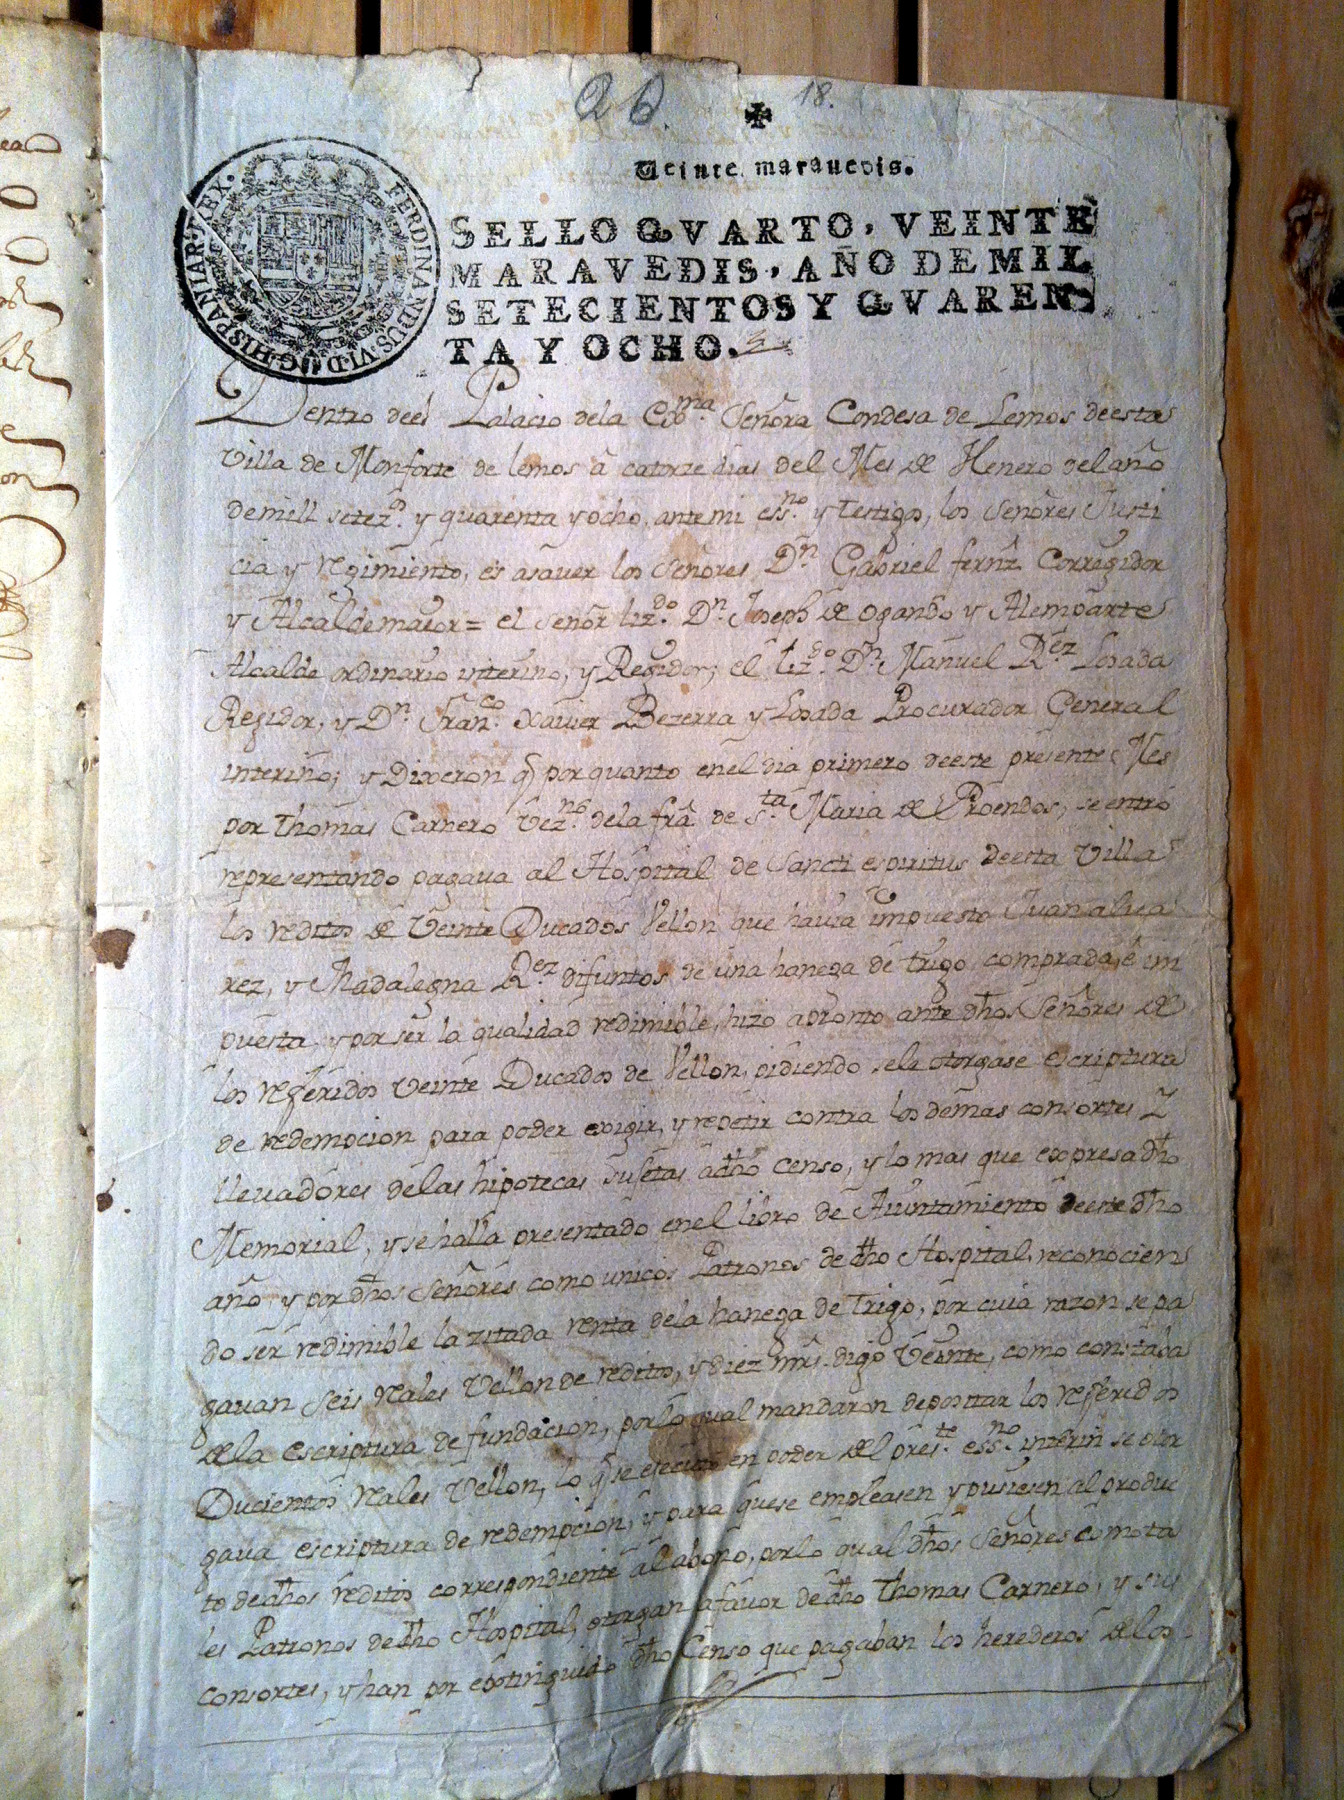 26. 18.
Veinte marauedis.
FERDINANDUS·VI·D·G·HISPANIAR·REX·
SELLO QVARTO, VEINTE
MARAVEDIS, AÑO DE MIL
SETECIENTOS Y QVAREN
TA Y OCHO.
Dentro deel Palacio dela Exma. Señora Condesa de Lemos deesta
Villa de Monforte de lemos â catorze dias del Mes de Henero del año
demill setezs. y quarenta yocho, ante mi essno. y testigos, los Señores Justi
cia y regimiento, es âsaver los señores Dn. Gabriel fernz. Corregidor
y Alcaldemaior = el señor lizdo. Dn. Joseph de Ogando y Alemparte
Alcalde ordinario interino, y Regidor; el lizdo. Dn. Manuel Rez. Losada
Regidor, y Dn. Franco. Xavier Bezerra y Losada Procurador General
interino; y Dixeron q por quanto enel dia primero deeste presente Mes
por thomas Carnero vezno. dela fra. de sta. Maria de Proendos, se entró
representando pagaua al Hospital de Sancti espiritus deesta Villa
los reditos de Veinte Ducados Vellon que hauia impuesto Juan alua
rez, y Madalegna Rez. difuntos de una hanega de trigo comprada, é im
puesta y por ser la qualidad redimible, hizo apronto ante dhos Señores de
los referidos veinte Ducados de Vellon, pidiendo sele otorgase escriptura
de redempcion para poder exigir, y repetir contra los demas consortes y
lleuadores delas hipotecas sujetas âdho censo, y lo mas que expresa dho
Memorial, y se halla presentado enel libro de Aiuntamiento deeste dho
año, y por dhos Señores como unicos Patronos de dho Hospital reconocien
do ser redimible la zitada renta dela hanega de trigo, por cuia razon se pa
gauan seis reales Vellon de reditos, y diez mrs. digo Veinte, como constaba
dela escriptura de fundacion, porlo qual mandaron depositar los referidos
Ducientos reales Vellon, lo q se ejecutó en poder del preste. essno. interin se otor
gaua escriptura de redempcion, y para quese empleasen y pusiesen al produc
to dedhos reditos correspondiente al abono, porlo qual dhos Señores como ta
les Patronos dedho Hospital, otorgan âfauor dedho thomas Carnero, y sus
consortes, y han por extinguido dho Censo que pagaban los herederos delos